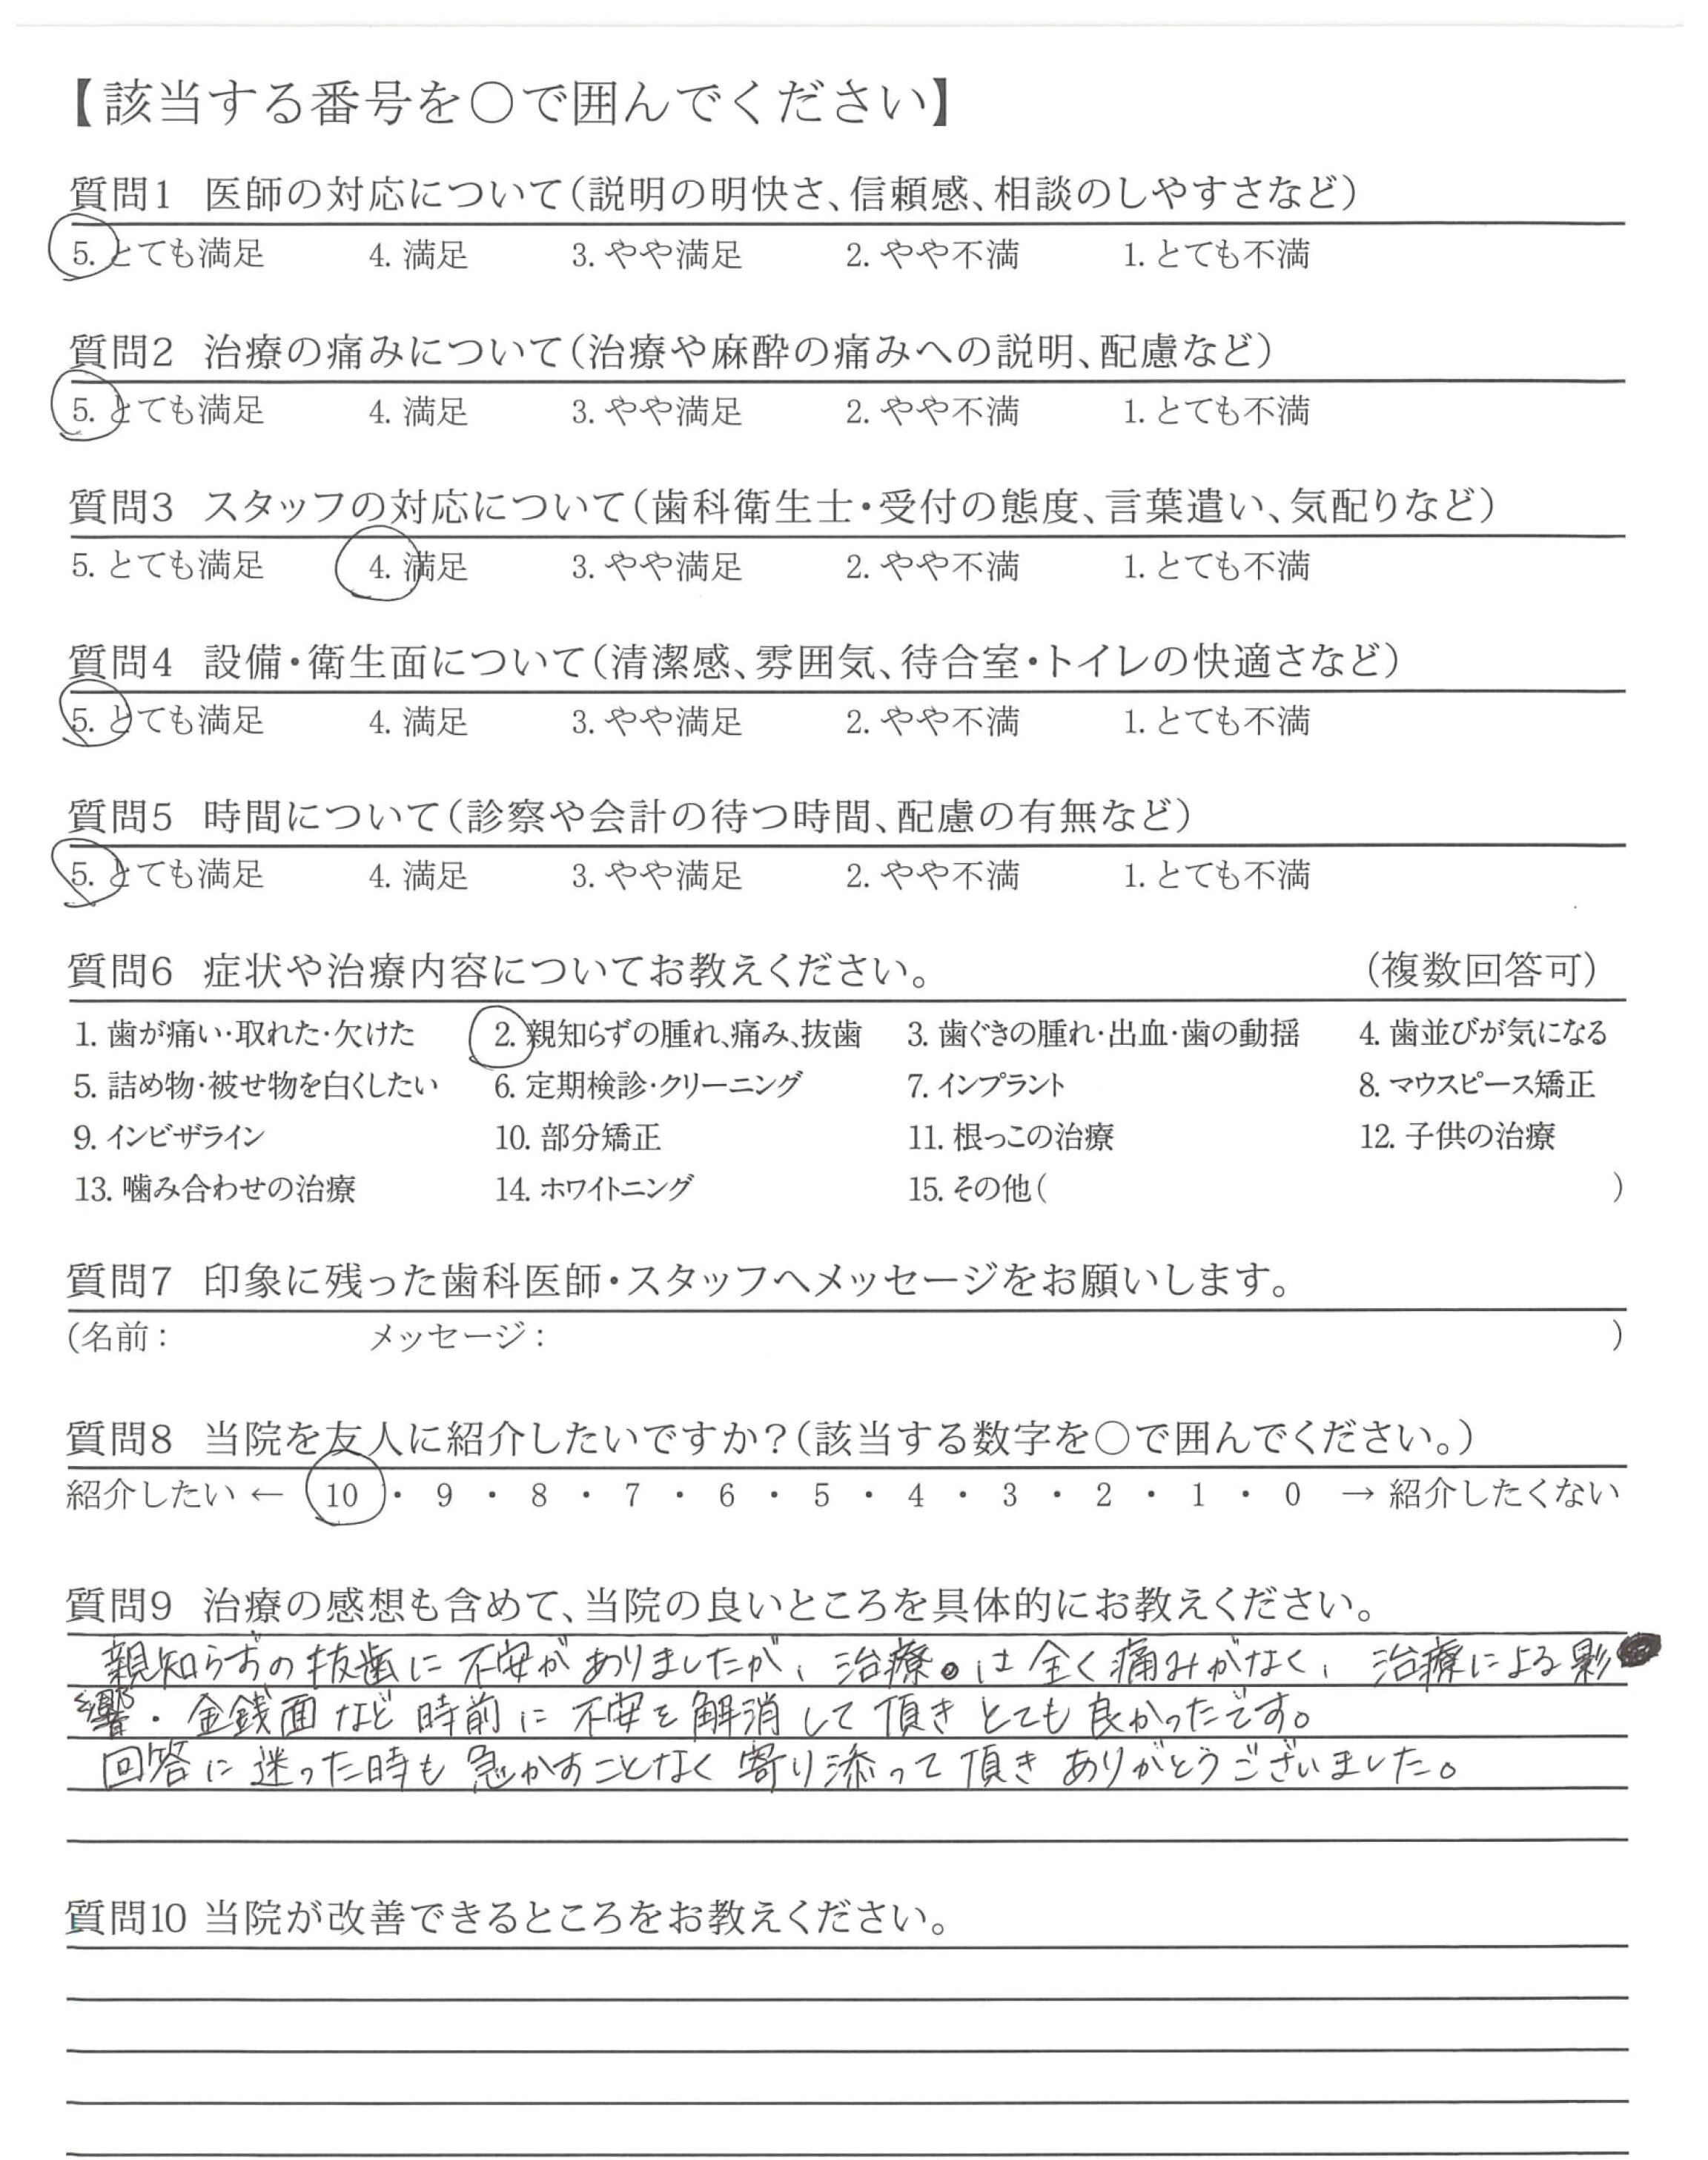 【該当する番号を〇で囲んでください】
質問1 医師の対応について(説明の明快さ、信頼感、相談のしやすさなど)
5. とても満足 4. 満足 3. やや満足 2. やや不満 1. とても不満
質問2 治療の痛みについて(治療や麻酔の痛みへの説明、配慮など)
5. とても満足 4. 満足 3. やや満足 2. やや不満 1. とても不満
質問3 スタッフの対応について(歯科衛生士・受付の態度、言葉遣い、気配りなど)
5. とても満足 4. 満足 3. やや満足 2. やや不満 1. とても不満
質問4 設備・衛生面について(清潔感、雰囲気、待合室・トイレの快適さなど)
5. とても満足 4. 満足 3. やや満足 2. やや不満 1. とても不満
質問5 時間について(診察や会計の待つ時間、配慮の有無など)
5. とても満足 4. 満足 3. やや満足 2. やや不満 1. とても不満
質問6 症状や治療内容についてお教えください。 (複数回答可)
1. 歯が痛い・取れた・欠けた 2. 親知らずの腫れ、痛み、抜歯 3. 歯ぐきの腫れ・出血・歯の動揺 4. 歯並びが気になる
5. 詰め物・被せ物を白くしたい 6. 定期検診・クリーニング 7. インプラント 8. マウスピース矯正
9. インビザライン 10. 部分矯正 11. 根っこの治療 12. 子供の治療
13. 噛み合わせの治療 14. ホワイトニング 15. その他( )
質問7 印象に残った歯科医師・スタッフへメッセージをお願いします。
(名前: メッセージ: )
質問8 当院を友人に紹介したいですか?(該当する数字を〇で囲んでください。)
紹介したい ← 10 ・ 9 ・ 8 ・ 7 ・ 6 ・ 5 ・ 4 ・ 3 ・ 2 ・ 1 ・ 0 → 紹介したくない
質問9 治療の感想も含めて、当院の良いところを具体的にお教えください。
親知らずの抜歯に不安がありましたが、治療は全く痛みがなく、治療による影
響・金銭面など時前に不安を解消して頂きとても良かったです。
回答に迷った時も急かすことなく寄り添って頂きありがとうございました。
質問10 当院が改善できるところをお教えください。